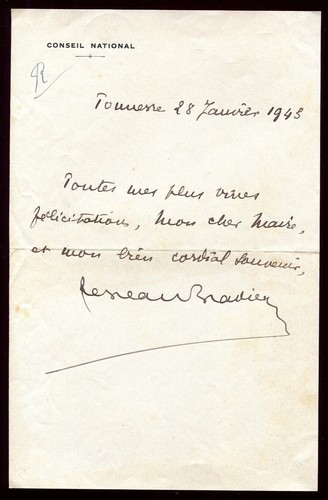 CONSEIL NATIONAL
R
Tonnerre 28 Janvier 1943
Toutes mes plus vives
félicitations, mon cher Maire,
et mon bien cordial souvenir,